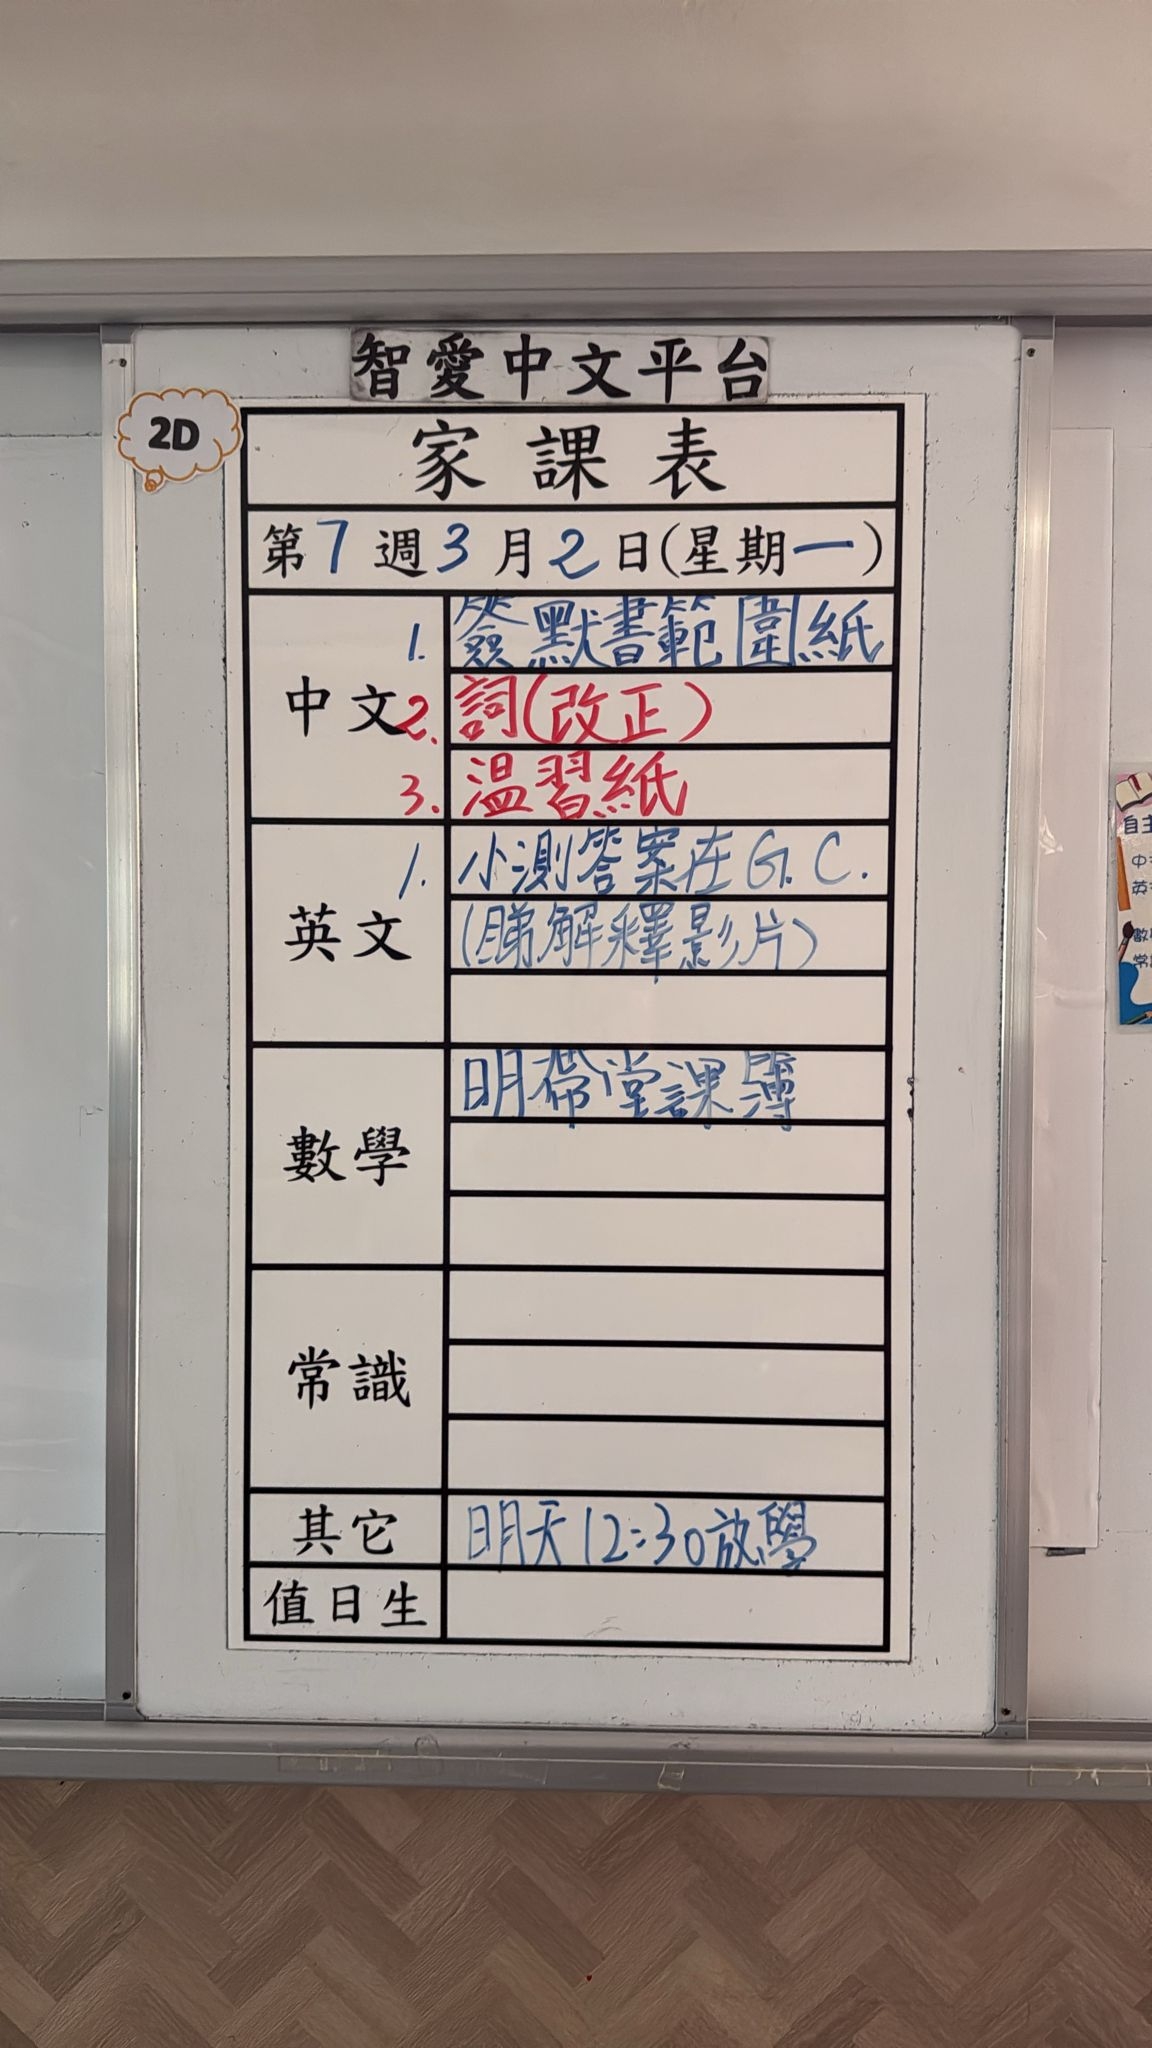 智愛中文平台
2D
家課表
第7週3月2日(星期一)
中文
1. 簽默書範圍紙
2. 詞(改正)
3. 溫習紙
英文
1. 小測答案在G.C.
(睇解釋影片)
數學
明帶堂課簿
常識
其它
明天12:30放學
值日生
自主
中
英
數
常